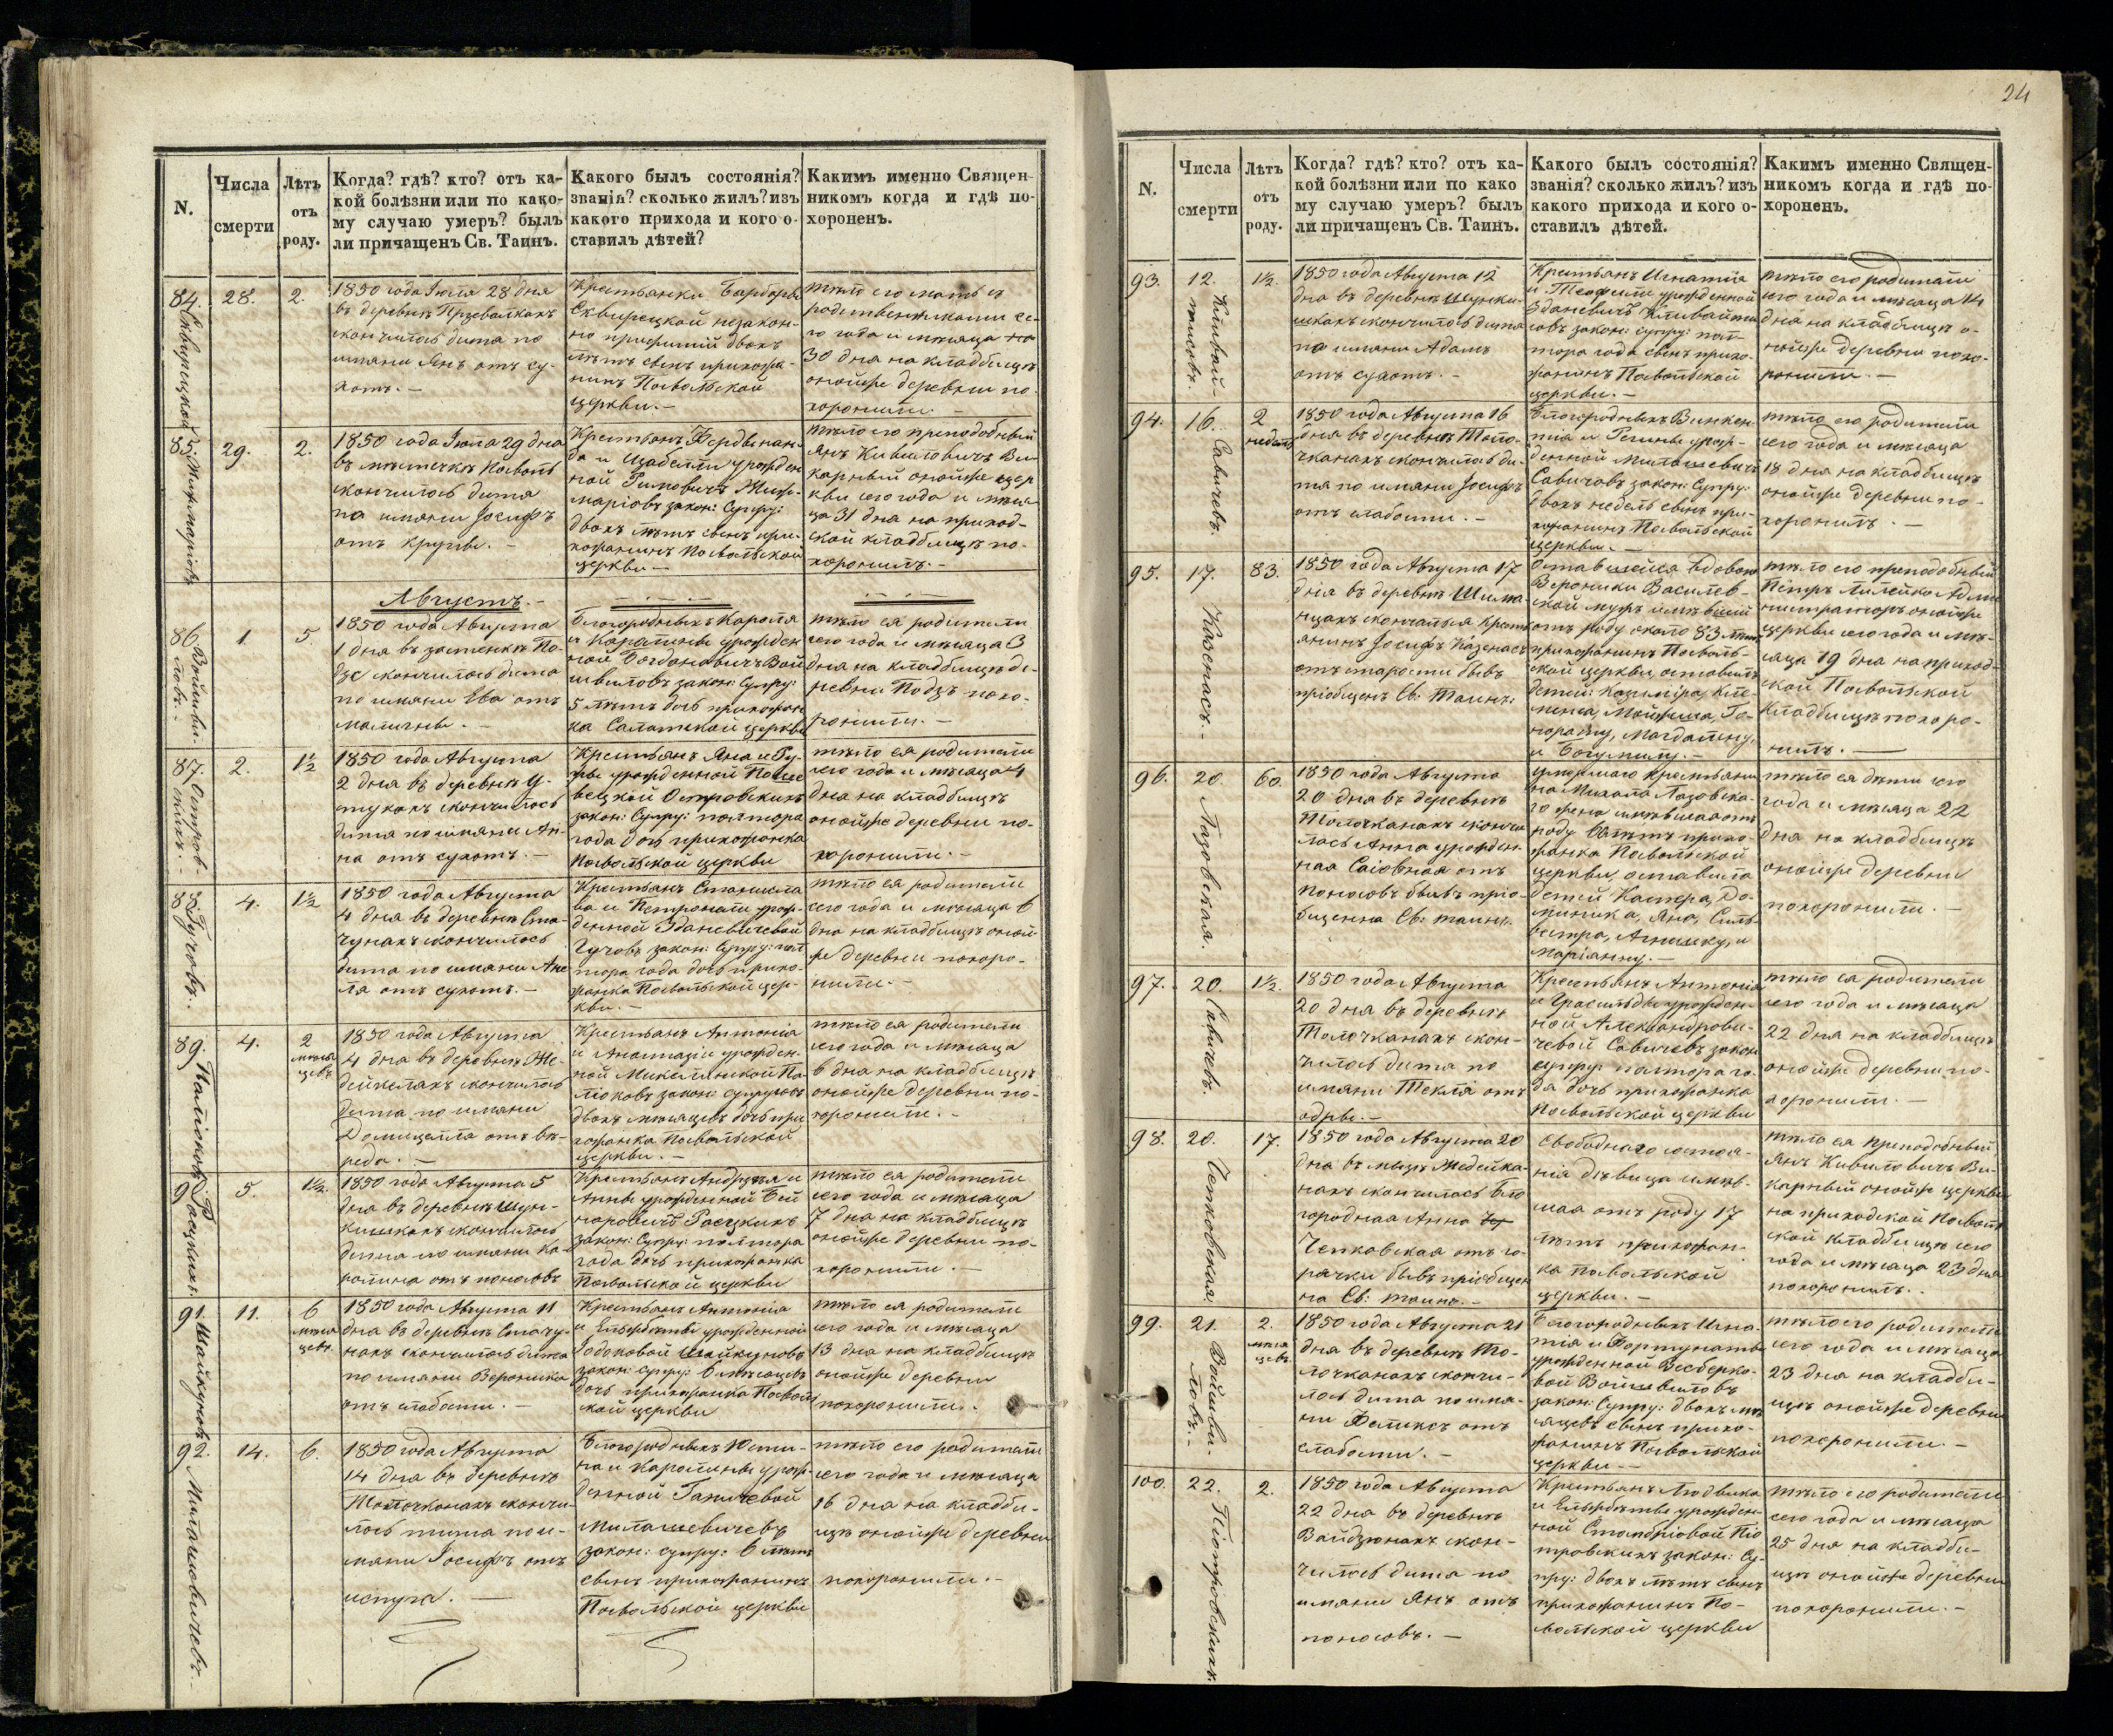 N.
Числа
смерти
Лѣтъ
отъ
роду.
Когда? гдѣ? кто? отъ ка-
кой болѣзни или по како-
му случаю умеръ? былъ
ли причащенъ Св. Таинъ.
Какого былъ состоянія?
званія? сколько жилъ? изъ
какого прихода и кого о-
ставилъ дѣтей?
Какимъ именно Священ-
никомъ когда и гдѣ по-
хороненъ.
84.
28.
2.
1850 года Іюля 28 дня
въ деревнѣ
скончилось дитя по
имяни Янъ отъ су-
хотъ. —
Крестьянки Барбары
Сквирецкой незакон-
но прижитый двохъ
лѣтъ сынъ прихожа-
нинъ Посвольской
церкви. —
тѣло его мать съ
родственниками се-
го года и мѣсяца
30 дня на кладбищѣ
онойже деревни по-
хоронили. —
85.
29.
2.
1850 года Іюля 29 дня
въ мѣстечкѣ Посволь
скончилось дитя
по имяни Іосифъ
отъ крупы. —
Крестьянъ Фердынан-
да и Изабелли урожден
ной Римовичъ
закон: Супру:
двохъ лѣтъ сынъ при-
хожанинъ Посвольской
церкви —
тѣло его преподобный
Янъ Кивиловичъ Ви-
карный онойже цер
кви сего года и мѣся
ца 31 дня на приход-
ской кладбищѣ по-
хоронилъ. —
Августъ. —
86.
Войшви-
ловъ. —
1.
5
1850 года Августа
1 дня въ застенкѣ По-
дзе скончилось дитя
по имяни Ева отъ
Благородныхъ Кароля
и урожден
ной Богдановичъ Вой
швиловъ закон: Супру:
5 лѣтъ дочь прихожан
ка Салатской церкви
тѣло ея родители
сего года и мѣсяца 3
дня на кладбищѣ де-
ревни Подзъ похо-
ронили. —
87.
Остров-
скихъ. —
2.
1½
1850 года Августа
2 дня въ деревнѣ
скончилось
дитя по имяни Ан-
на отъ сухотъ. —
Крестьянъ Яна и
урожденной
Островскихъ
закон: Супру: полтора
года дочь прихожанка
Посвольской церкви
тѣло ея родители
сего года и мѣсяца 4
дня на кладбищѣ
онойже деревни по-
хоронили. —
88.
Гучовъ.
4.
1½
1850 года Августа
4 дня въ деревнѣ Ста-
чунахъ скончилось
дитя по имяни Ане
ля отъ сухотъ. —
Крестьянъ Станисла
ва и Петронели урож-
денной Зданевичевой
Гучовъ закон: Супру: пол
тора года дочь прихо-
жанка Посвольской цер-
кви. —
тѣло ея родители
сего года и мѣсяца 6
дня на кладбищѣ оной
же деревни похоро-
нили. —
89.
4.
2
мѣся
цевъ
1850 года Августа
4 дня въ деревнѣ Же-
дейкеляхъ скончилось
дитя по имяни
Домицелла отъ в-
реда. —
Крестьянъ Антонія
и Анастазіи урожден-
ной
закон: супруговъ
двохъ мѣсяцевъ дочь при
хожанка Посвольской
церкви. —
тѣло ея родители
сего года и мѣсяца
6 дня на кладбищѣ
онойже деревни по-
хоронили. —
90.
5.
1½.
1850 года Августа 5
дня въ деревнѣ Шун-
кишкахъ скончилось
дитя по имяни Ка-
ролина отъ поносовъ
Крестьянъ Андржея и
Анны урожденной
закон: Супру: полтора
года дочь прихожанка
Посвольской церкви
тѣло ея родители
сего года и мѣсяца
7 дня на кладбищѣ
онойже деревни по-
хоронили. —
91.
Шайкуновъ
11.
6
мѣся
цевъ
1850 года Августа 11
дня въ деревнѣ Стачу-
нахъ скончилось дитя
по имяни Вероника
отъ слабости. —
Крестьянъ Антонія
и Ельжбѣты урожденной
Шайкуновъ
закон: супру: 6 мѣсяцевъ
дочь прихожанка Посволь
ской церкви
тѣло ея родители
сего года и мѣсяца
13 дня на кладбищѣ
онойже деревни
похоронили. —
92.
Милашевичевъ. —
14.
6.
1850 года Августа
14 дня въ деревнѣ
Толочканахъ скончи-
лось дитя по и-
мяни Іосифъ отъ
испуга. —
Благородныхъ Юсти-
на и Каролины урож-
денной
Милашевичевъ
закон: супру: 6 лѣтъ
сынъ прихожанинъ
Посвольской церкви
тѣло его родители
сего года и мѣсяца
16 дня на кладби-
щѣ онойже деревни
похоронили. —
24
N.
Числа
смерти
Лѣтъ
отъ
роду.
Когда? гдѣ? кто? отъ ка-
кой болѣзни или по како
му случаю умеръ? былъ
ли причащенъ Св. Таинъ.
Какого былъ состоянія?
званія? сколько жилъ? изъ
какого прихода и кого о-
ставилъ дѣтей.
Какимъ именно Священ-
никомъ когда и гдѣ по-
хороненъ.
93.
12.
1½.
1850 года Августа 12
дня въ деревнѣ Шунки-
шкахъ скончилось дитя
по имяни Адамъ
отъ сухотъ. —
Крестьянъ Игнатія
и Теофили урожденной
Зданевичъ
закон: супру: пол-
тора года сынъ прихо-
жанинъ Посвольской
церкви. —
тѣло его родители
сего года и мѣсяца 14
дня на кладбищѣ о-
нойже деревни похо-
ронили. —
94.
Савичевъ.
16.
2
недель
1850 года Августа 16
дня въ деревнѣ Толо-
чканахъ скончилось ди-
тя по имяни Іосифъ
отъ слабости. —
Благородныхъ Винкен
тія и Регины урож-
денной Милашевичъ
Савичовъ закон: Супру:
двохъ недель сынъ при-
хожанинъ Посвольской
церкви. —
тѣло его родители
сего года и мѣсяца
18 дня на кладбищѣ
онойже деревни по-
хоронилъ. —
95.
Казенасъ. —
17.
83.
1850 года Августа 17
дня въ деревнѣ Шима-
нцахъ скончался крест
янинъ Іосифъ Казенасъ
отъ старости бывъ
пріобщенъ Св: Таинъ:
Оставшейся вдовою
Вероники Василев-
ской мужъ имѣвшій
отъ роду около 83 лѣтъ
прихожанинъ Посволь-
ской церкви оставилъ
детей: Казиміра, Кле-
менса,
Магдалену,
и
тѣло его преподобный
Петръ Адми
нистраторъ онойже
церкви сего года и мѣ-
сяца 19 дня на приход-
ской Посвольской
кладбищѣ похоро-
нилъ. —
96.
Лазовская.
20
60.
1850 года Августа
20 дня въ деревнѣ
Толочканахъ скончи
лась Анна урожден-
ная отъ
поносовъ бывъ пріо-
бщенна Св: таинъ.
умершаго крестьяни
на Михала Лазовска-
го жена имѣвшая отъ
роду 60 лѣтъ прихо-
жанка Посвольской
церкви, оставила
детей До-
миника, Яна, Силь-
вестра, Агнешку, и
Маріанну. —
тѣло ея дѣти сего
года и мѣсяца 22
дня на кладбищѣ
онойже деревни
похоронили. —
97.
Савичевъ.
20.
1½.
1850 года Августа
20 дня въ деревнѣ
Толочканахъ скон-
чилось дитя по
имяни Текля отъ
одры. —
Крестьянъ Антонія
и урожден-
ной Александрови-
чевой Савичевъ закон
супру: полтора го-
да дочь прихожанка
Посвольской церкви
тѣло ея родители
сего года и мѣсяца
22 дня на кладбищѣ
онойже деревни по-
хоронили. —
98.
Чепковская.
20.
17.
1850 года Августа 20
дня въ Жедейка-
нахъ скончилась Бла
городная Анна
Чепковская отъ го-
рячки бывъ пріобщен
на Св: таинъ. —
Свободнаго состоя-
нія дѣвица имѣв-
шая отъ роду 17
лѣтъ прихожан-
ка Посвольской
церкви. —
тѣло ея преподобный
Янъ Кивиловичъ Ви-
карный онойже церкви
на приходской Посволь
ской кладбищѣ сего
года и мѣсяца 23 дня
похоронилъ.
99.
Войшви-
ловъ. —
21.
2.
мѣся
цевъ
1850 года Августа 21
дня въ деревнѣ То-
лочканахъ скончи-
лось дитя по имя-
ни Феликсъ отъ
слабости. —
Благородныхъ Игна-
тія и Фортунаты
урожденной
Войшвиловъ
закон: Супру: двохъ мѣ
сяцевъ сынъ прихо-
жанинъ Посвольской
церкви —
тѣло его родители
сего года и мѣсяца
23 дня на кладби-
щѣ онойже деревни
похоронили. —
100.
Піотровскихъ.
22.
2.
1850 года Августа
22 дня въ деревнѣ
Вайдзюнахъ скон-
чилось дитя по
имяни Янъ отъ
поносовъ. —
Крестьянъ Людвика
и Ельжбѣты урожден-
ной Піо
тровскихъ закон: Су-
пру: двохъ лѣтъ сынъ
прихожанинъ По-
свольской церкви
тѣло его родители
сего года и мѣсяца
25 дня на кладби-
щѣ онойже деревни
похоронили. —